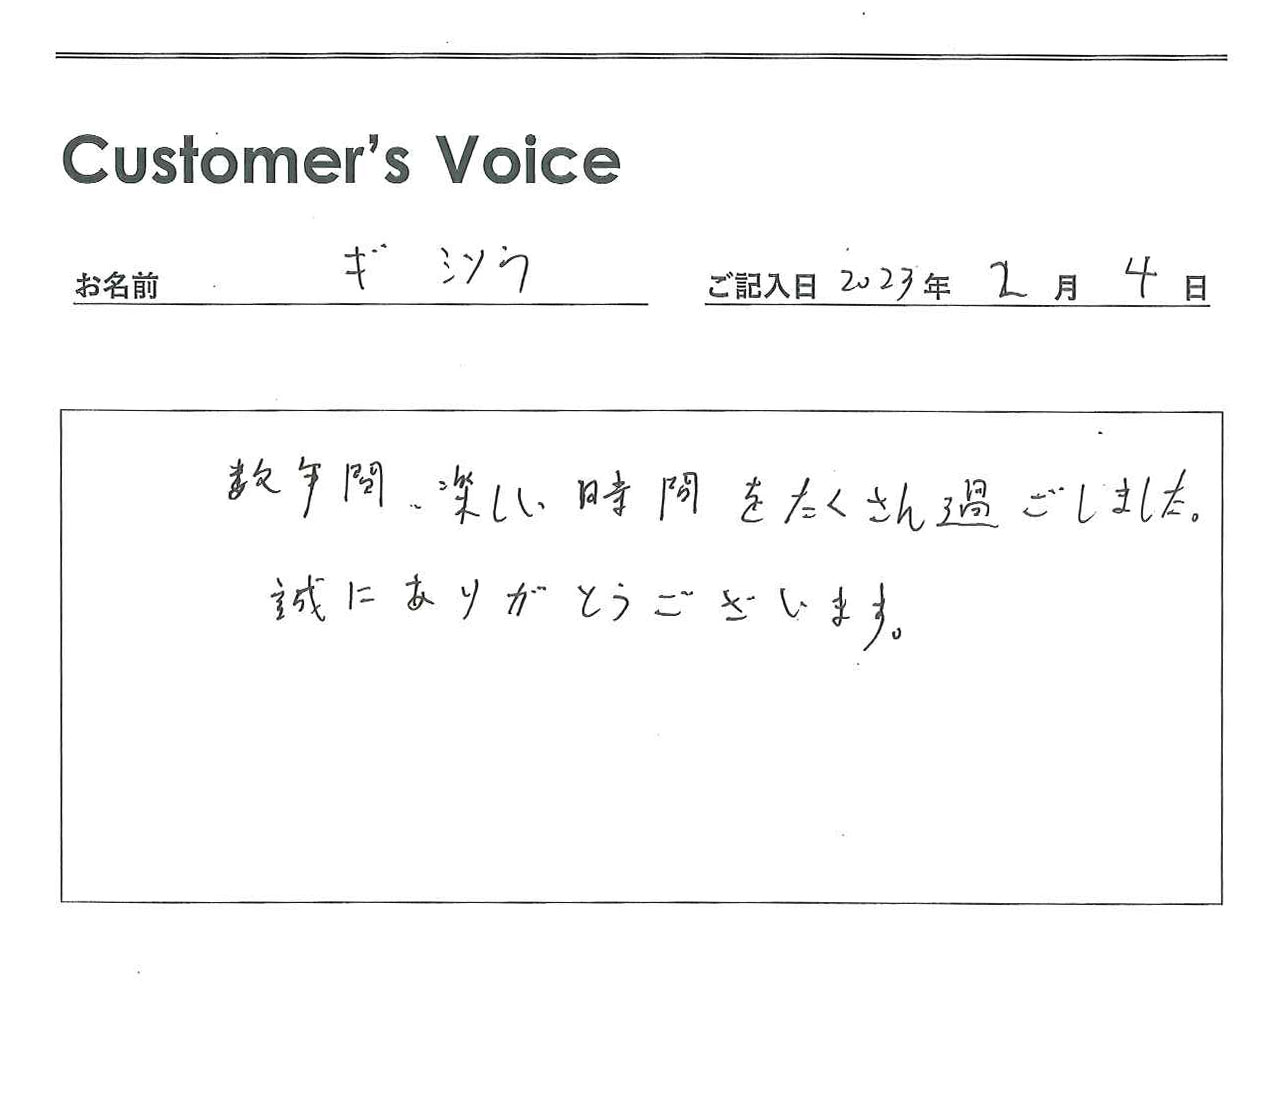 Customer's Voice
お名前 ギ シソウ ご記入日 2023年 2月 4日
数年間、楽しい時間をたくさん過ごしました。
誠にありがとうございます。